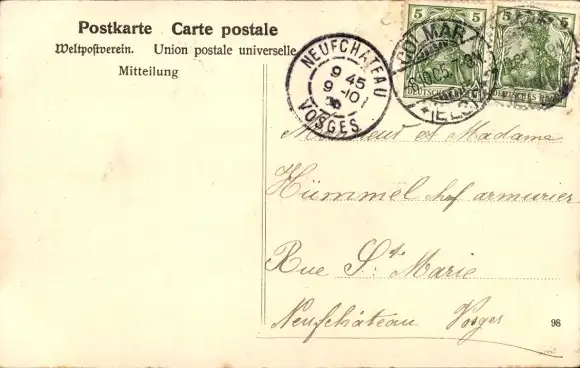 Postkarte Carte postale
Weltpostverein. Union postale universelle
Mitteilung
NEUFCHATEAU
9 45
9 -10
VOSGES
COLMAR
(ELS.)
5 5
DEUTSCHES REICH
5 5
DEUTSCHES REICH
Monsieur et Madame
Hümmel chef armurier
Rue Ste Marie
Neufchâteau Vosges
98